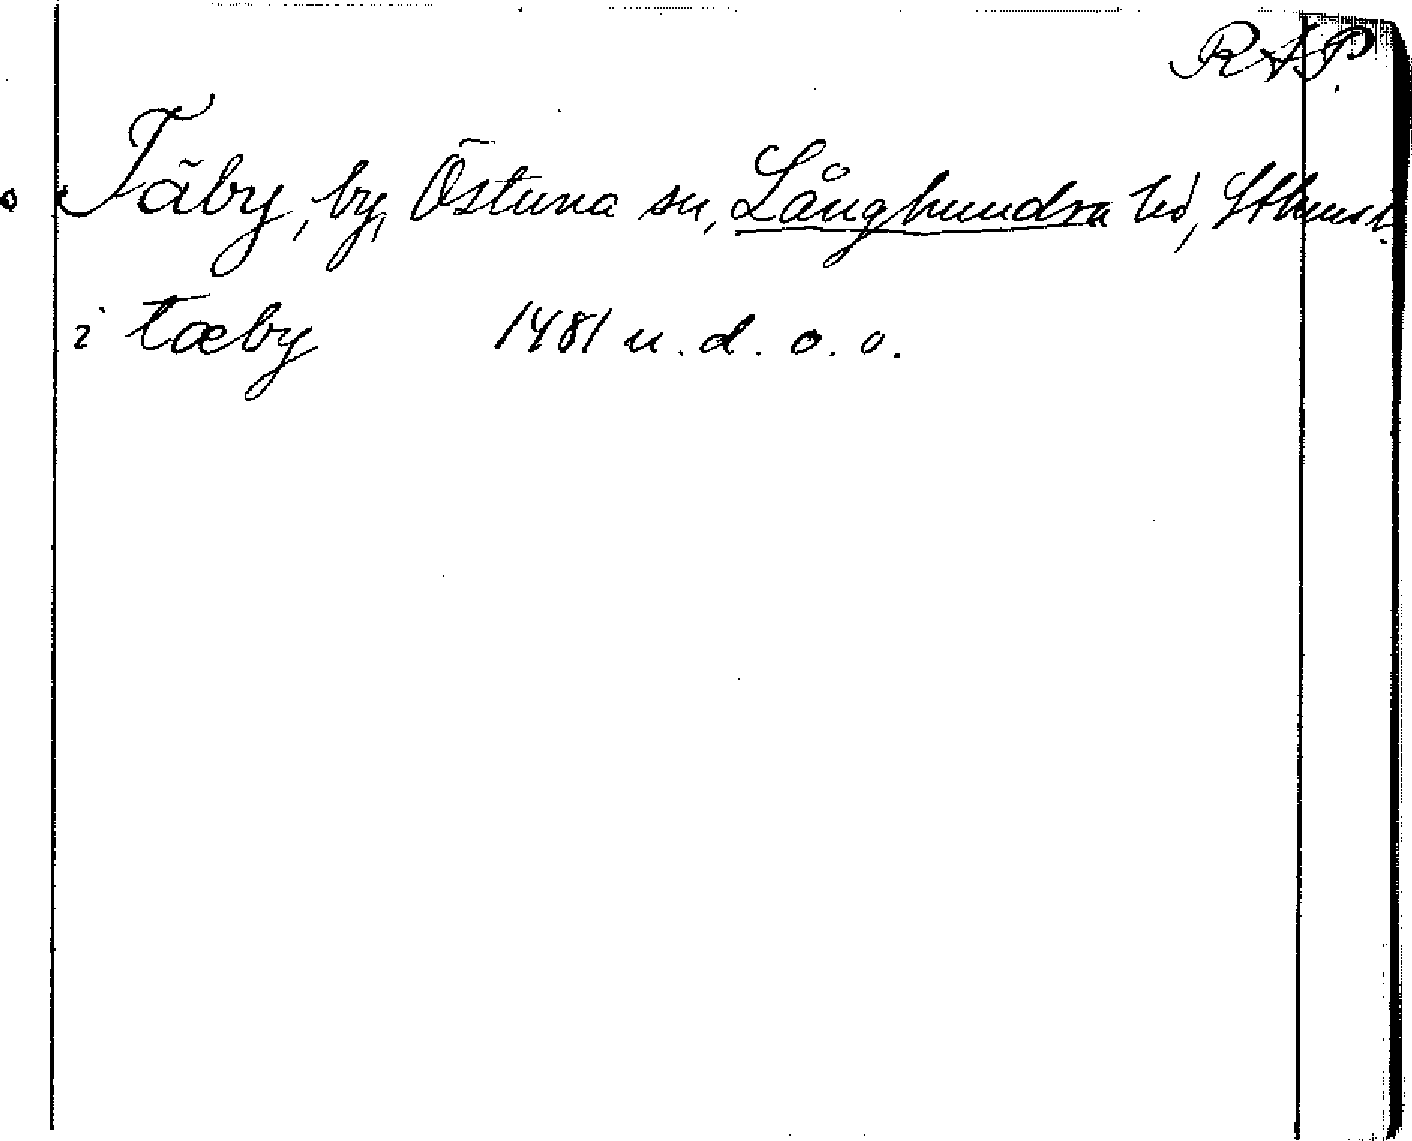 RAP.
Täby, by, Östuna sn, Långhundra hd, Sthms l.
i tæby 1481 u. d. o. o.